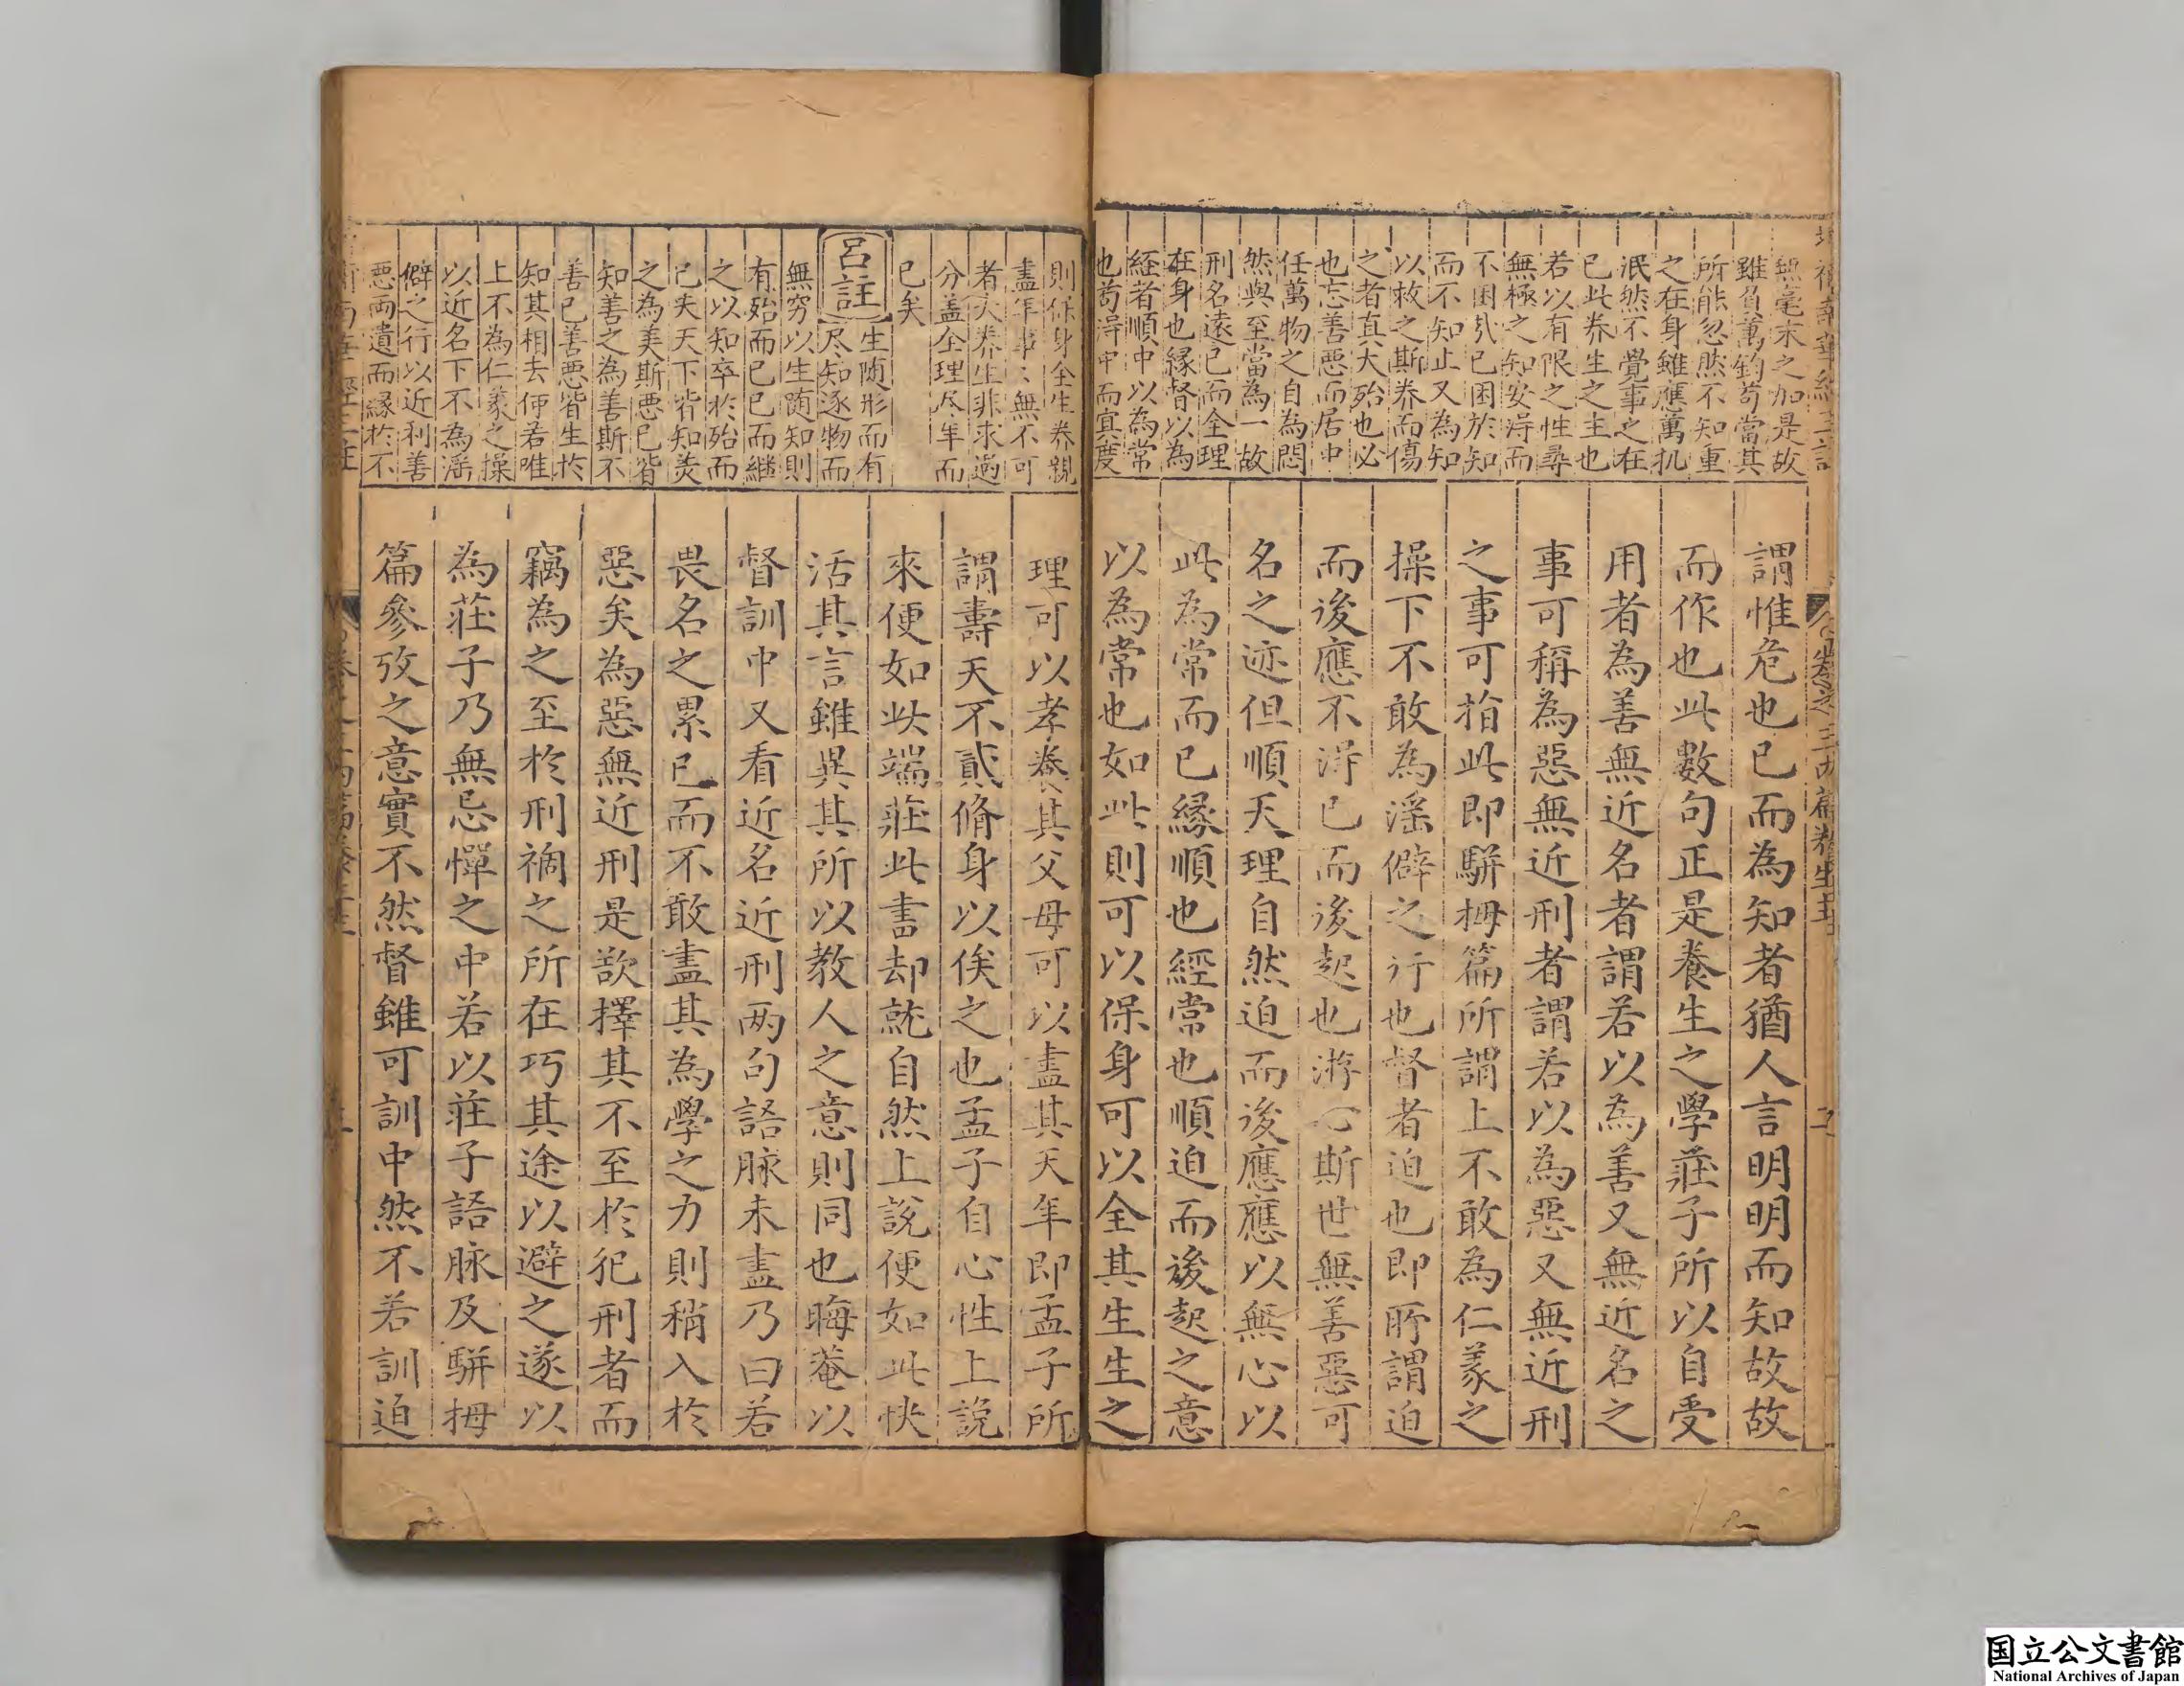 無毫末之加是故
雖負萬鈞苟當其
所能忽然不知重
之在身雖應萬机
泯然不覺事之在
已此养生之主也
若以有限之性尋
無極之知安淂而
不困㢤已困於知
而不知止又為知
以救之斯养而傷
之者真大殆也必
也忘善悪而居中
任萬物之自為悶
然與至當為一故
刑名遠已而全理
在身也縁督以為
経者順中以為常
也苟淂中而冥度
謂惟危也已而為知者猶人言明明而知故故
而作也此數句正是養生之學莊子所以自受
用者為善無近名者謂若以為善又無近名之
事可稱為惡無近刑者謂若以為惡又無近刑
之事可指此即駢拇篇所謂上不敢為仁義之
操下不敢為滛僻之行也督者迫也即所謂迫
而後應不淂已而後起也游心斯世無善惡可
名之迹但順天理自然迫而後應應以無心以
此為常而已縁順也經常也順迫而後起之意
以為常也如此則可以保身可以全其生生之
則保身全生养親
盡年事〻無不可
者夫养生非求過
分盖全理尽年而
已矣
呂註
生随形而有
尽知逐物而
無窮以生随知則
有殆而已已而継
之以知卒於殆而
已失天下皆知羙
之為美斯悪已皆
知善之為善斯不
善已善悪皆生於
知其相去何若唯
上不為仁義之操
以近名下不為滛
僻之行以近利善
悪両遺而縁於不
理可以孝養其父母可以盡其天年即孟子所
謂壽夭不貳脩身以俟之也孟子自心性上說
來便如此端莊此書却就自然上說便如此快
活其言雖異其所以教人之意則同也晦菴以
督訓中又看近名近刑兩句語脉未盡乃曰若
畏名之累已而不敢盡其為學之力則稍入於
惡矣為惡無近刑是欲擇其不至於犯刑者而
竊為之至於刑禍之所在巧其途以避之遂以
為莊子乃無忌憚之中若以莊子語脉及駢拇
篇參攷之意實不然督雖可訓中然不若訓迫
国立公文書館
National Archives of Japan